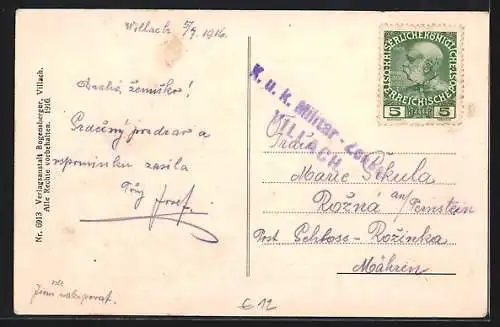 Villach 5/9 1916.
Drahá ženuško!
Srdečný pozdrav a
vzpomínku zasílá
Tvůj Josef.
jsem nakupovat.
Nr. 6913 Verlagsanstalt Bogensberger, Villach.
Alle Rechte vorbehalten. 1916.
KAISERLICHE KÖNIGLICHE
ÖSTERREICHISCHE
5 HELLER 5
K. u. K. Militär-
VILLACH
Marie Sikula
Rožná an/Pernstein
Post Schloss-Rožinka
Mähren
€ 12